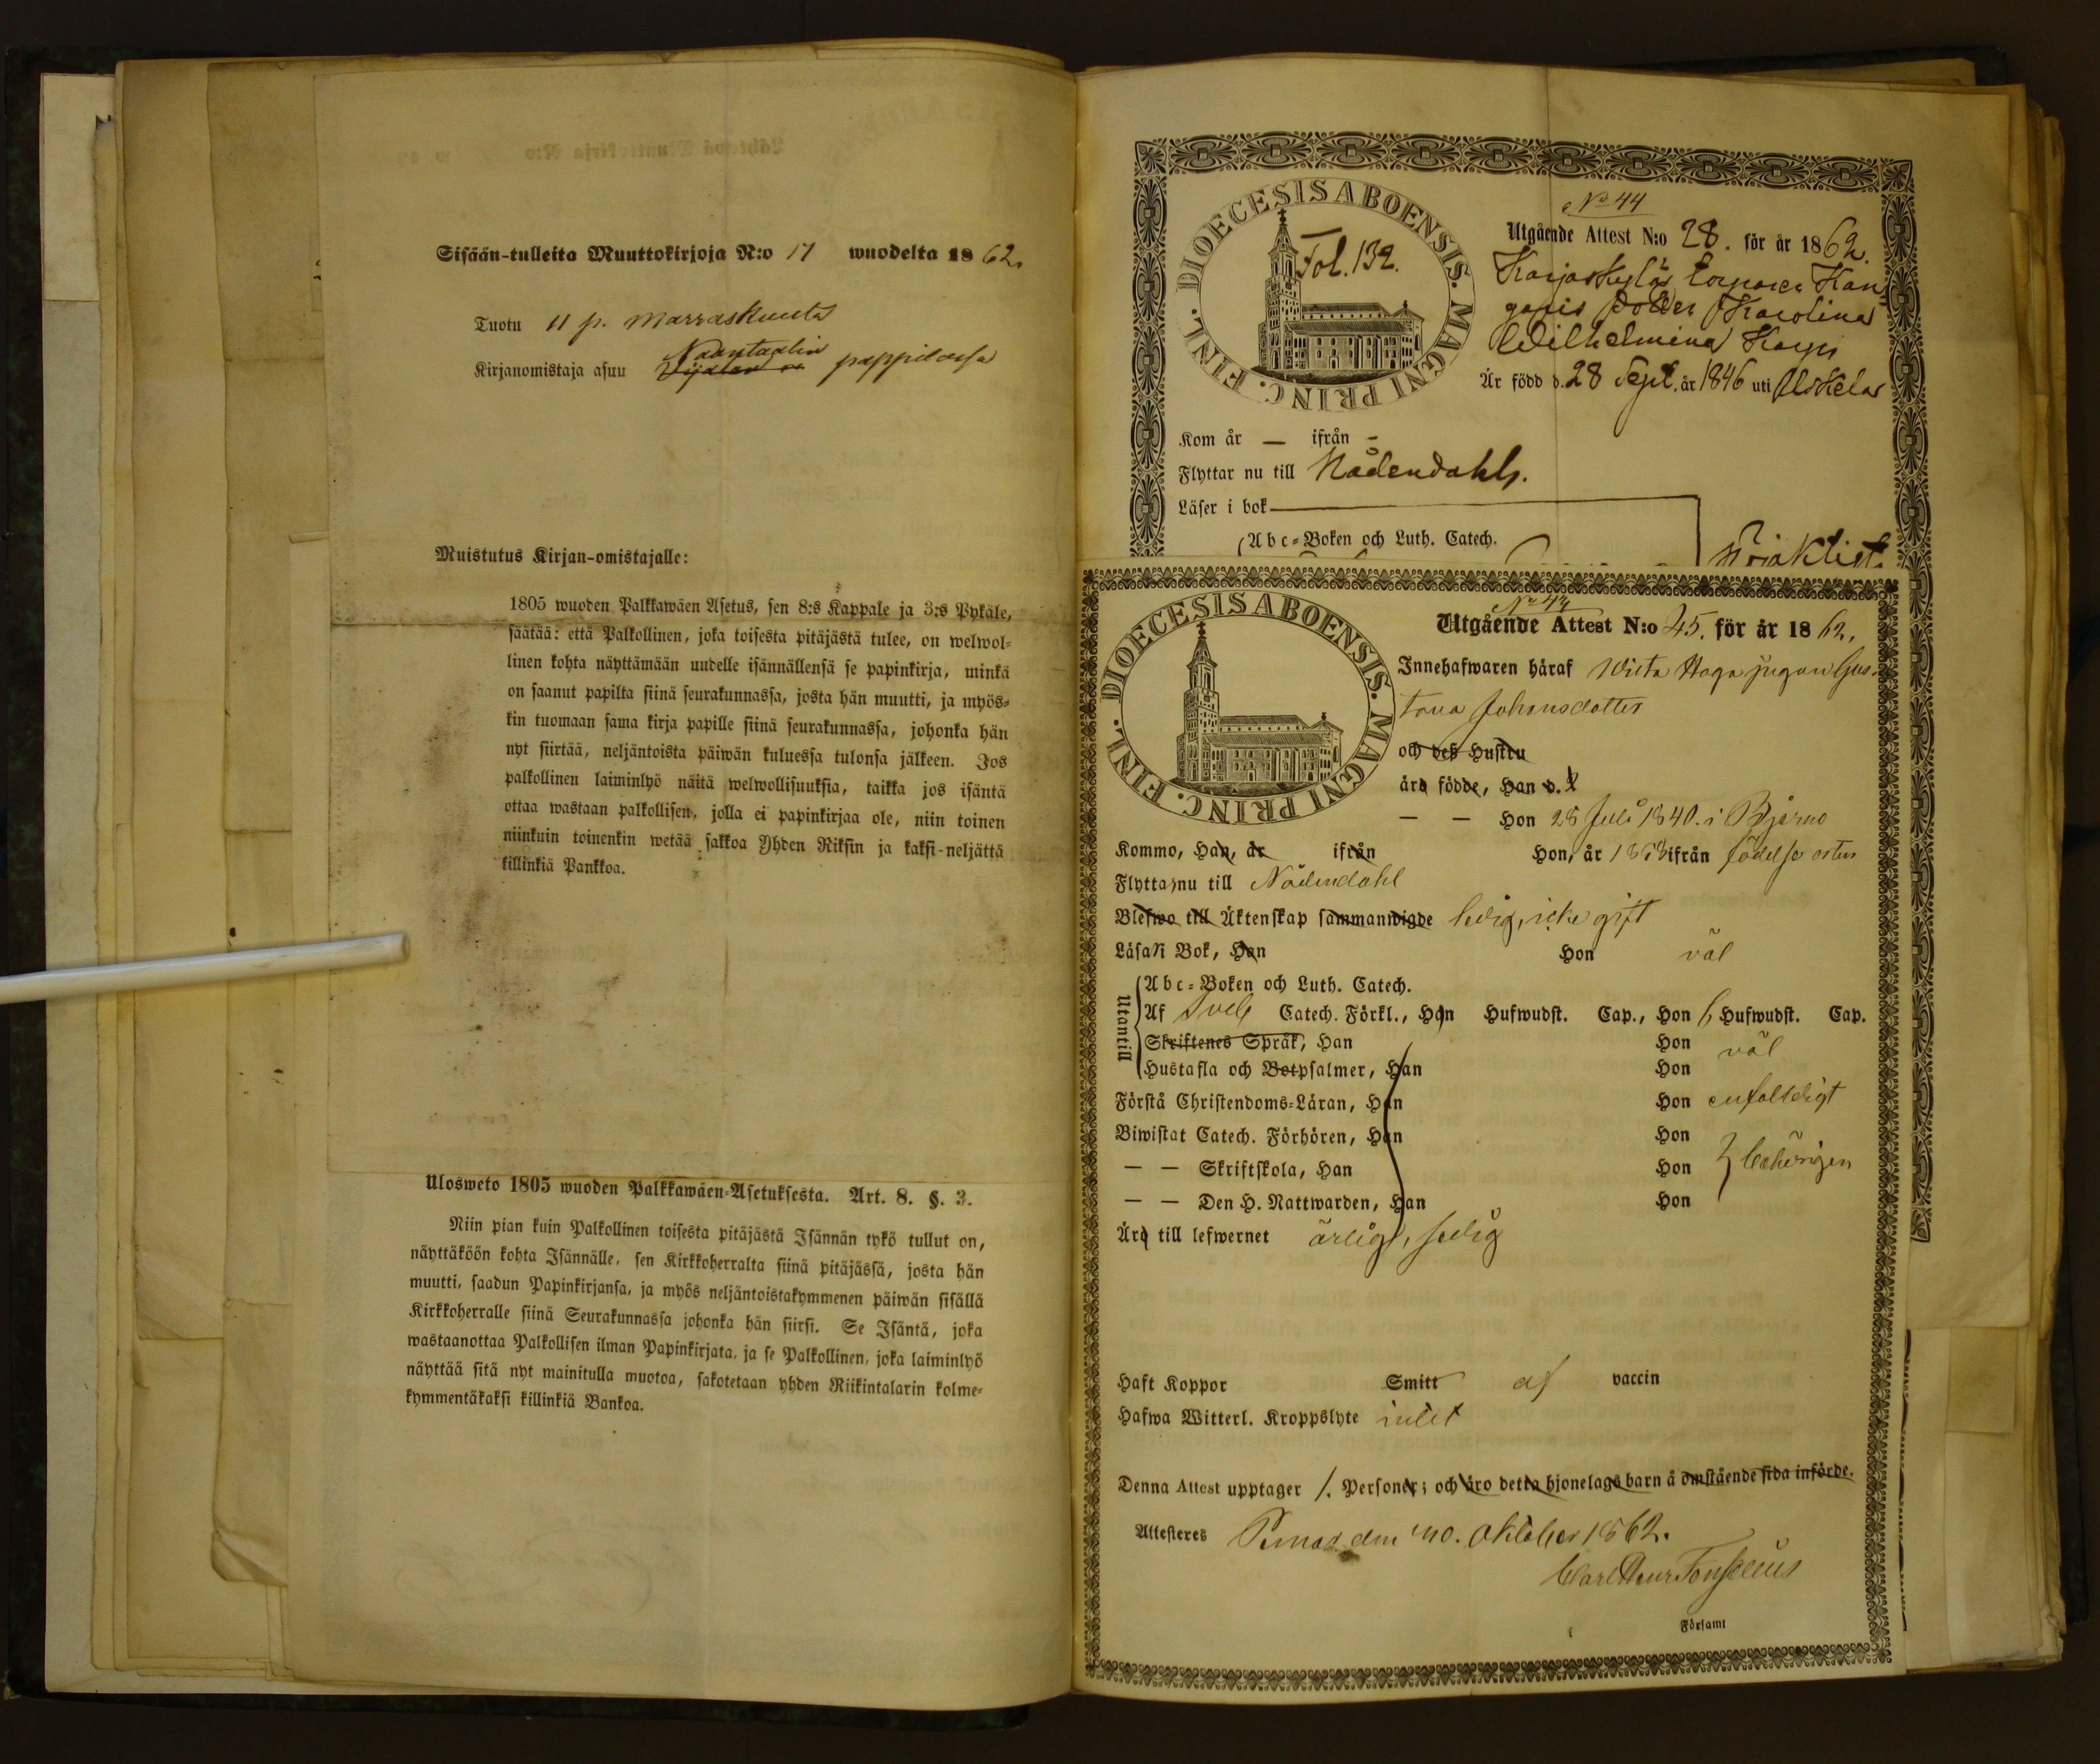 Sisään-tulleita Muuttokirjoja N:o 17 wuodelta 1862.
Tuotu 11 p. Marraskuuta
Naantalin
Kirjanomistaja asuu pappilassa
Muistutus Kirjan-omistajalle:
1805 wuoden Palkkawäen Asetus, sen 8:s Kappale ja 3:s Pykäle,
säätää: että Palkollinen, joka toisesta pitäjästä tulee, on welwol-
linen kohta näyttämään uudelle isännällensä se papinkirja, minkä
on saanut papilta siinä seurakunnassa, josta hän muutti, ja myös-
kin tuomaan sama kirja papille siinä seurakunnassa, johonka hän
nyt siirtää, neljäntoista päiwän kuluessa tulonsa jälkeen. Jos
palkollinen laiminlyö näitä welwollisuuksia, taikka jos isäntä
ottaa wastaan palkollisen, jolla ei papinkirjaa ole, niin toinen
niinkuin toinenkin wetää sakkoa Yhden Riksin ja kaksi-neljättä
killinkiä Pankkoa.
Ulosweto 1805 wuoden Palkkawäen-Asetuksesta. Art. 8. §. 3.
Niin pian kuin Palkollinen toisesta pitäjästä Isännän tykö tullut on,
näyttäköön kohta Isännälle, sen Kirkkoherralta siinä pitäjässä, josta hän
muutti, saadun Papinkirjansa, ja myös neljäntoistakymmenen päiwän sisällä
Kirkkoherralle siinä Seurakunnassa johonka hän siirsi. Se Isäntä, joka
wastaanottaa Palkollisen ilman Papinkirjata, ja se Palkollinen, joka laiminlyö
näyttää sitä nyt mainitulla muotoa, sakotetaan yhden Riikintalarin kolme-
kymmentäkaksi killinkiä Bankoa.
DIOECESIS ABOENSIS. MAGNI PRINC. FINL.
Fol. 132.
No 44
Utgående Attest N:o 28. för år 1862.
Karjaskylä
Karolina
Wilhelmina
Är född d. 28 Sept. år 1846 uti Uskela
Kom år — ifrån -
Flyttar nu till Nådendahl.
Läser i bok
Abc-Boken och Luth. Catech.
DIOECESIS ABOENSIS. MAGNI PRINC. FINL.
Utgående Attest N:o 45. för år 1862.
Innehafwaren häraf Wista Haga pigan Gus-
tava Johansdotter
och deß Hustru
äro födde, Han d.
— — Hon 28 Juli 1840. i Bjerno
Kommo, Han, år ifrån Hon, år ifrån födelse orten
Flytta nu till Nådendahl
Blefwo till Äktenskap sammanwigde ledig, icke gift
Läsa i Bok, Han Hon väl
Utantill
Abc-Boken och Luth. Catech.
Af Sveb Catech. Förkl., Han Hufwudst. Cap., Hon 6 Hufwudst. Cap.
Skriftenes Språk, Han Hon väl
Hustafla och Botpsalmer, Han Hon
Förstå Christendoms-Läran, Han Hon enfaldigt
Biwistat Catech. Förhören, Han Hon
— — Skriftskola, Han Hon behörigen
— — Den H. Nattwarden, Han Hon
Äro till lefwernet ärlig, sedig
Haft Koppor Smitt af vaccin
Hafwa Witterl. Kroppslyte intet
Denna Attest upptager 1. Personer; och äro detta hjonelags barn å omstående sida införde.
Attesteres Pemar den 10. Oktober 1862.
Carl Henr Fonselius
Församl